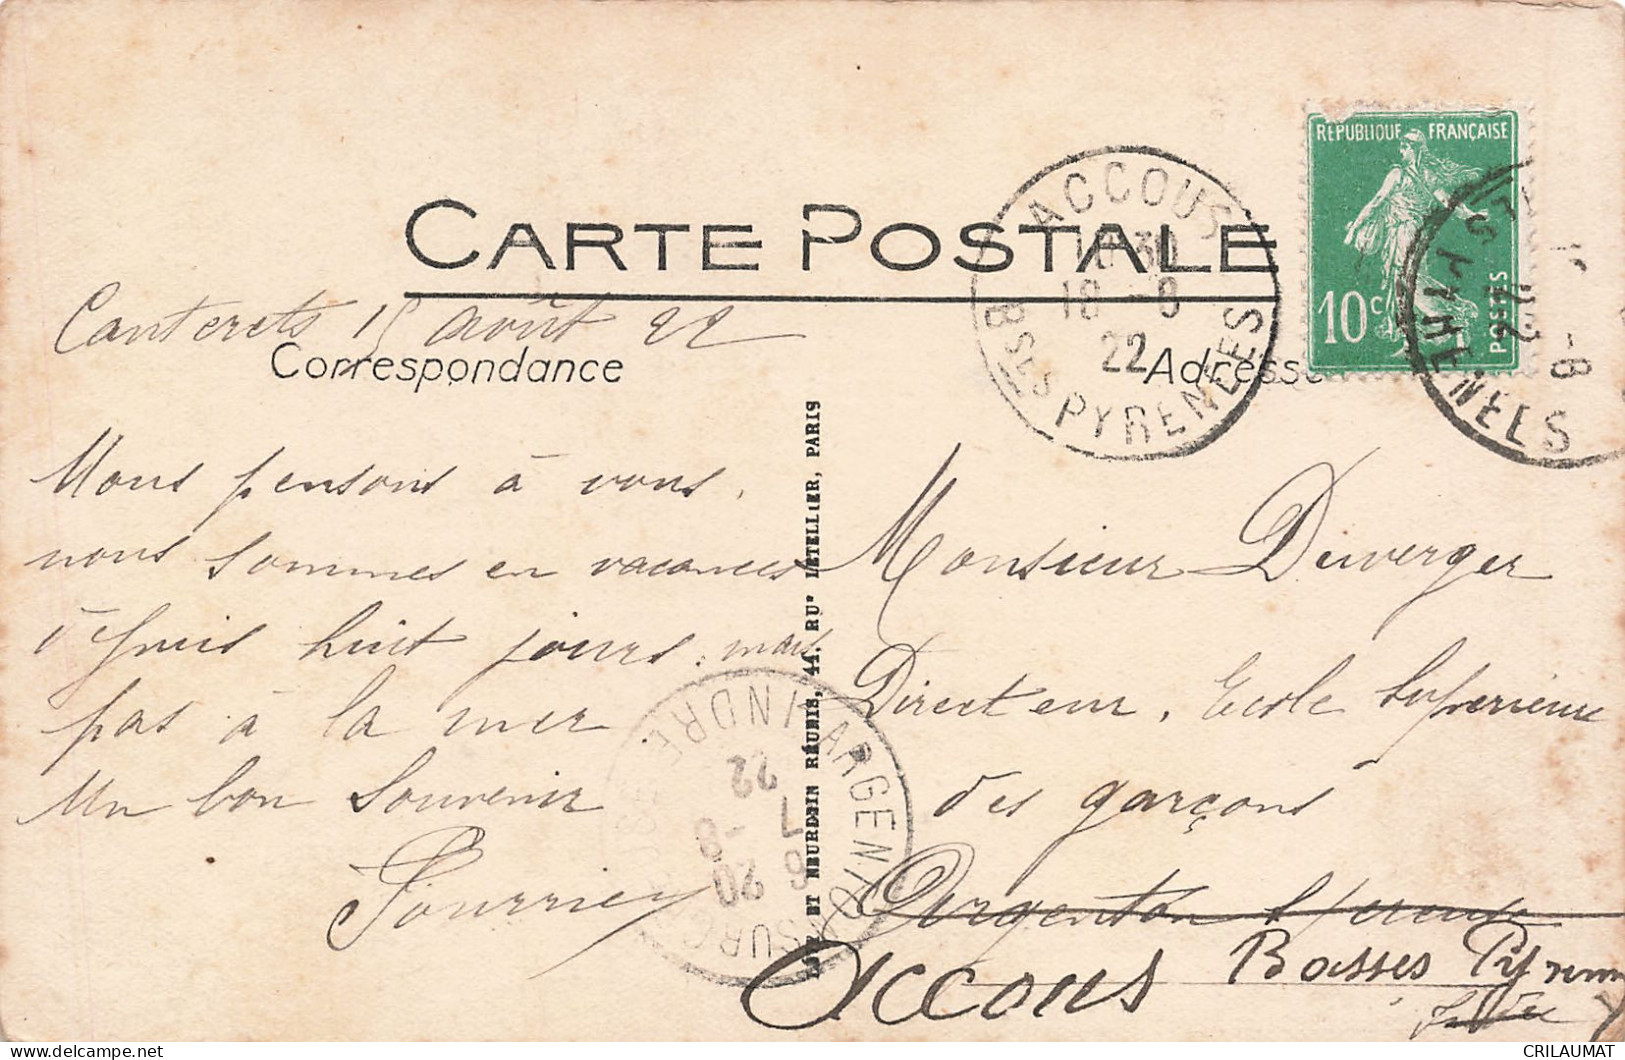 CARTE POSTALE
RÉPUBLIQUE FRANÇAISE
10c
POSTES
ACCOUS
18 -8
22
BSES PYRENEES
22
-8
Cauterets 15 août 22
Correspondance
Adresse
Nous pensons à vous.
nous sommes en vacances
depuis huit jours. mais
pas à la mer.
Un bon Souvenir
Fourrier
ET NEURDEIN RÉUNIS, 44, RUE LETELLIER, PARIS
ARGENTON SUR CREUSE
INDRE
6 20
7 -8
22
Monsieur Duverger
Directeur, Ecole Supérieure
des garçons
Argenton s/ creuse
Accous Basses Pyrénn
Indre
CRILAUMAT